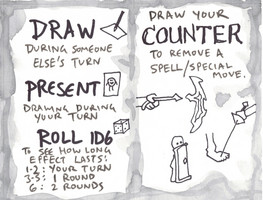 DRAW
DURING SOMEONE
ELSE'S TURN
PRESENT
DRAWING DURING
YOUR TURN
ROLL 1D6
TO SEE HOW LONG
EFFECT LASTS:
1-2: YOUR TURN
3-5: 1 ROUND
6: 2 ROUNDS
DRAW YOUR
COUNTER
TO REMOVE A
SPELL/SPECIAL
MOVE.